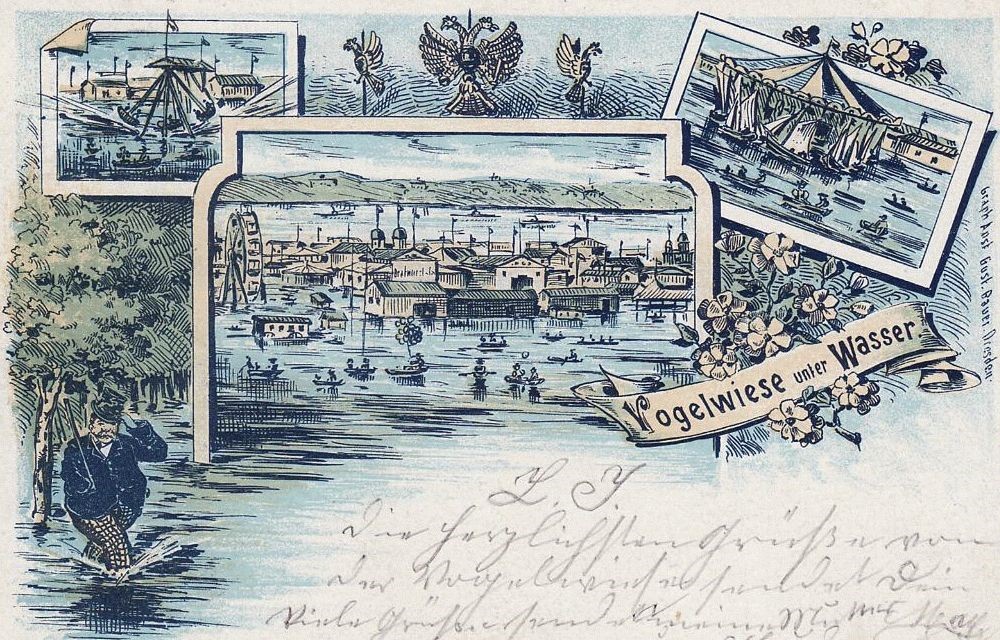 Vogelwiese unter Wasser
Graph. Anst. Gust. Bauer, Dresden.
L. J
die herzlichsten Grüße von
der Vogelwiese sendet Dein
Viele Grüße sendet